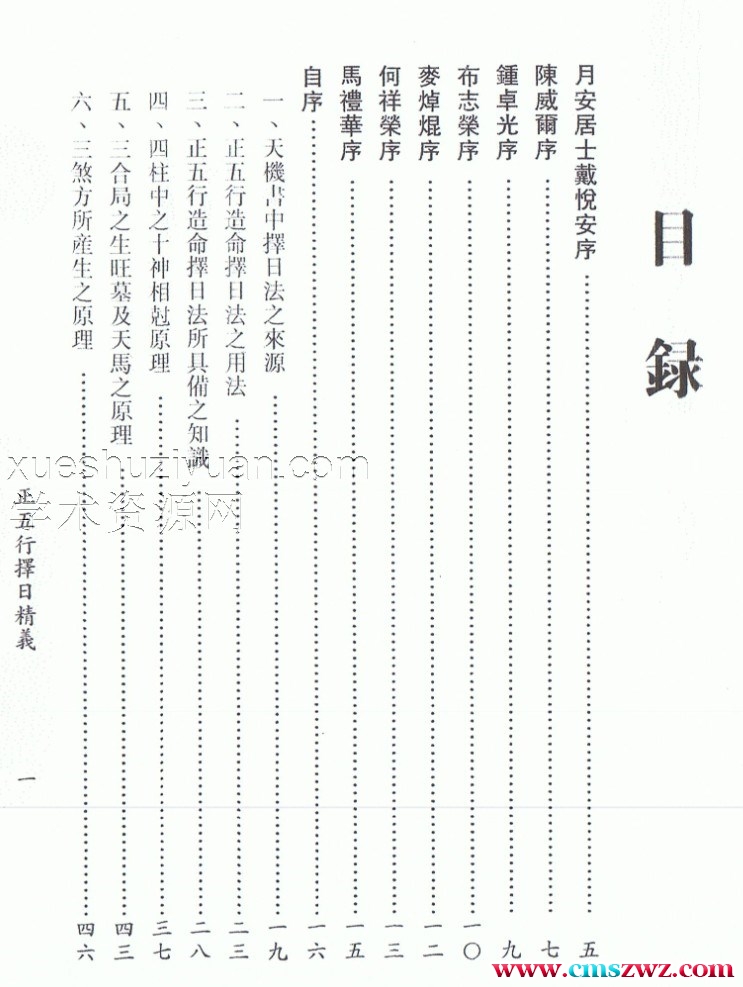 目錄
月安居士戴悅安序……五
陳威爾序……七
鍾卓光序……九
布志榮序……一〇
麥焯焜序……一二
何祥榮序……一三
馬禮華序……一五
自序……一六
一、天機書中擇日法之來源……一九
二、正五行造命擇日法之用法……二三
三、正五行造命擇日法所具備之知識……二八
四、四柱中之十神相尅原理……三七
五、三合局之生旺墓及天馬之原理……四三
六、三煞方所産生之原理……四六
正五行擇日精義
一
xueshuziyuan.com
学术资源网
www.cmszwz.com